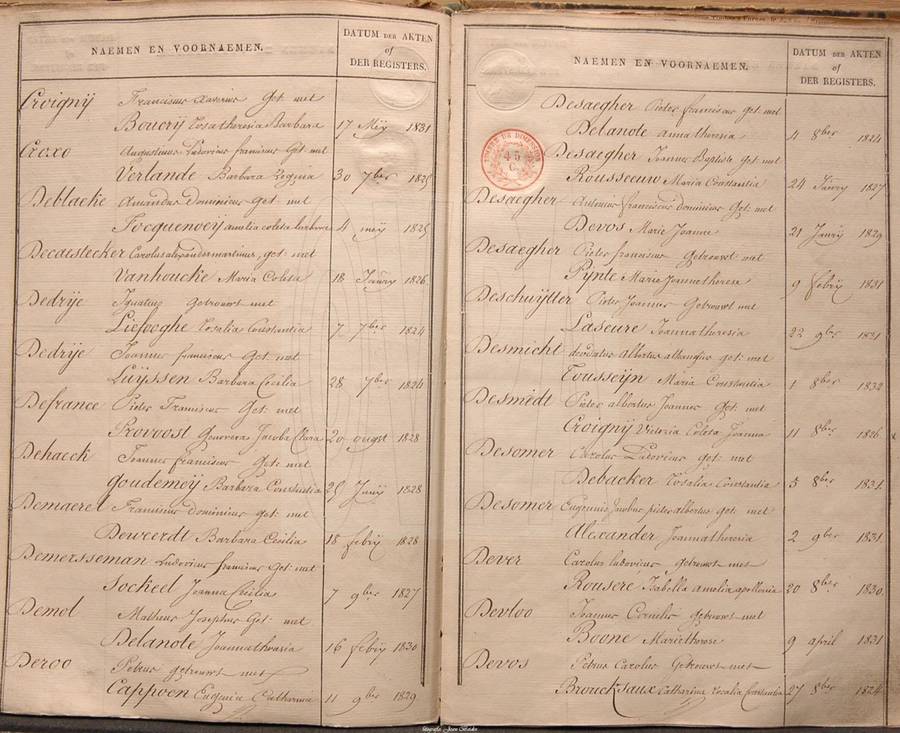 NAEMEN EN VOORNAEMEN.
DATUM DER AKTEN
of
DER REGISTERS.
Croignij Franciscus Xaverius Get. met
Boucrij Rosa theresia Barbara 17 Meij 1831
Croxo Augustinus Ludovicus franciscus Get. met
Verlande Barbara Regina 30 7ber 1825
Deblaeke Amandus Dominicus Get. met
Focquenoeij amelia coleta barbara 4 meij 1825
Decaestecker Carolus alexander martinus, get. met
Vanhoucke Maria Coleta 18 Janry 1826
Dedrije Ignatius Getrouwt met
Liefooghe Rosalia Constantia 7 7ber 1824
Dedrije Joannes franciscus Get. met
Luijssen Barbara Cecilia 28 7ber 1824
Defrance Pieter Franciscus Get. met
Provoost Genovera Jacoba Clara 20 ougst 1828
Dehaeck Joannes franciscus Get. met
Goudemeij Barbara Constantia 25 Junij 1828
Demaerel Franciscus Dominicus get. met
Deweerdt Barbara Cecilia 18 febrij 1828
Demersseman Ludovicus franciscus Get. met
Sockeel Joanna Cecilia 7 9ber 1827
Demol Matheus Josephus Get. met
Delanote Joanna theresia 16 febrij 1830
Deroo Petrus getrouwt met
Cappoen Eugenia Catharina 11 9ber 1829
NAEMEN EN VOORNAEMEN.
DATUM DER AKTEN
of
DER REGISTERS.
TIMBRE DE DIMENSION
45
C.
Desaegher Pieter franciscus get. met
Delanote anna theresia 4 8ber 1824
Desaegher Joannes Baptiste get. met
Rousseeuw Maria Constantia 24 Janry 1827
Desaegher Antonius franciscus Dominicus Get. met
Devos Marie Joanne 21 Janry 1829
Desaegher Pieter franciscus Getrouwt met
Pynte Marie Joanna therese 9 febrij 1831
Deschuijtter Pieter Joannes Getrouwt met
Laseure Joanna theresia 22 9ber 1831
Desmicht deodatus albertus get. met
Tousseijn Maria Constantia 1 8ber 1832
Desmedt Pieter albertus Joannes Get. met
Croigny Victoria Coleta Joanna 11 8ber 1826
Desomer Carolus Ludovicus get. met
Debacker Rosalia Constantia 5 8ber 1831
Desomer Eugenius Jacobus pieter albertus get. met
Alexander Joanna theresia 2 9ber 1831
Dever Carolus ludovicus getrouwt met
Rousere Isabella Amelia apollonia 20 8ber 1830
Devloo Joannes Cornelis getrouwt met
Boone Marie therese 9 april 1831
Devos Petrus Carolus Getrouwt met
Brouckxaux Catharina rosalia constantia 27 8ber 1824